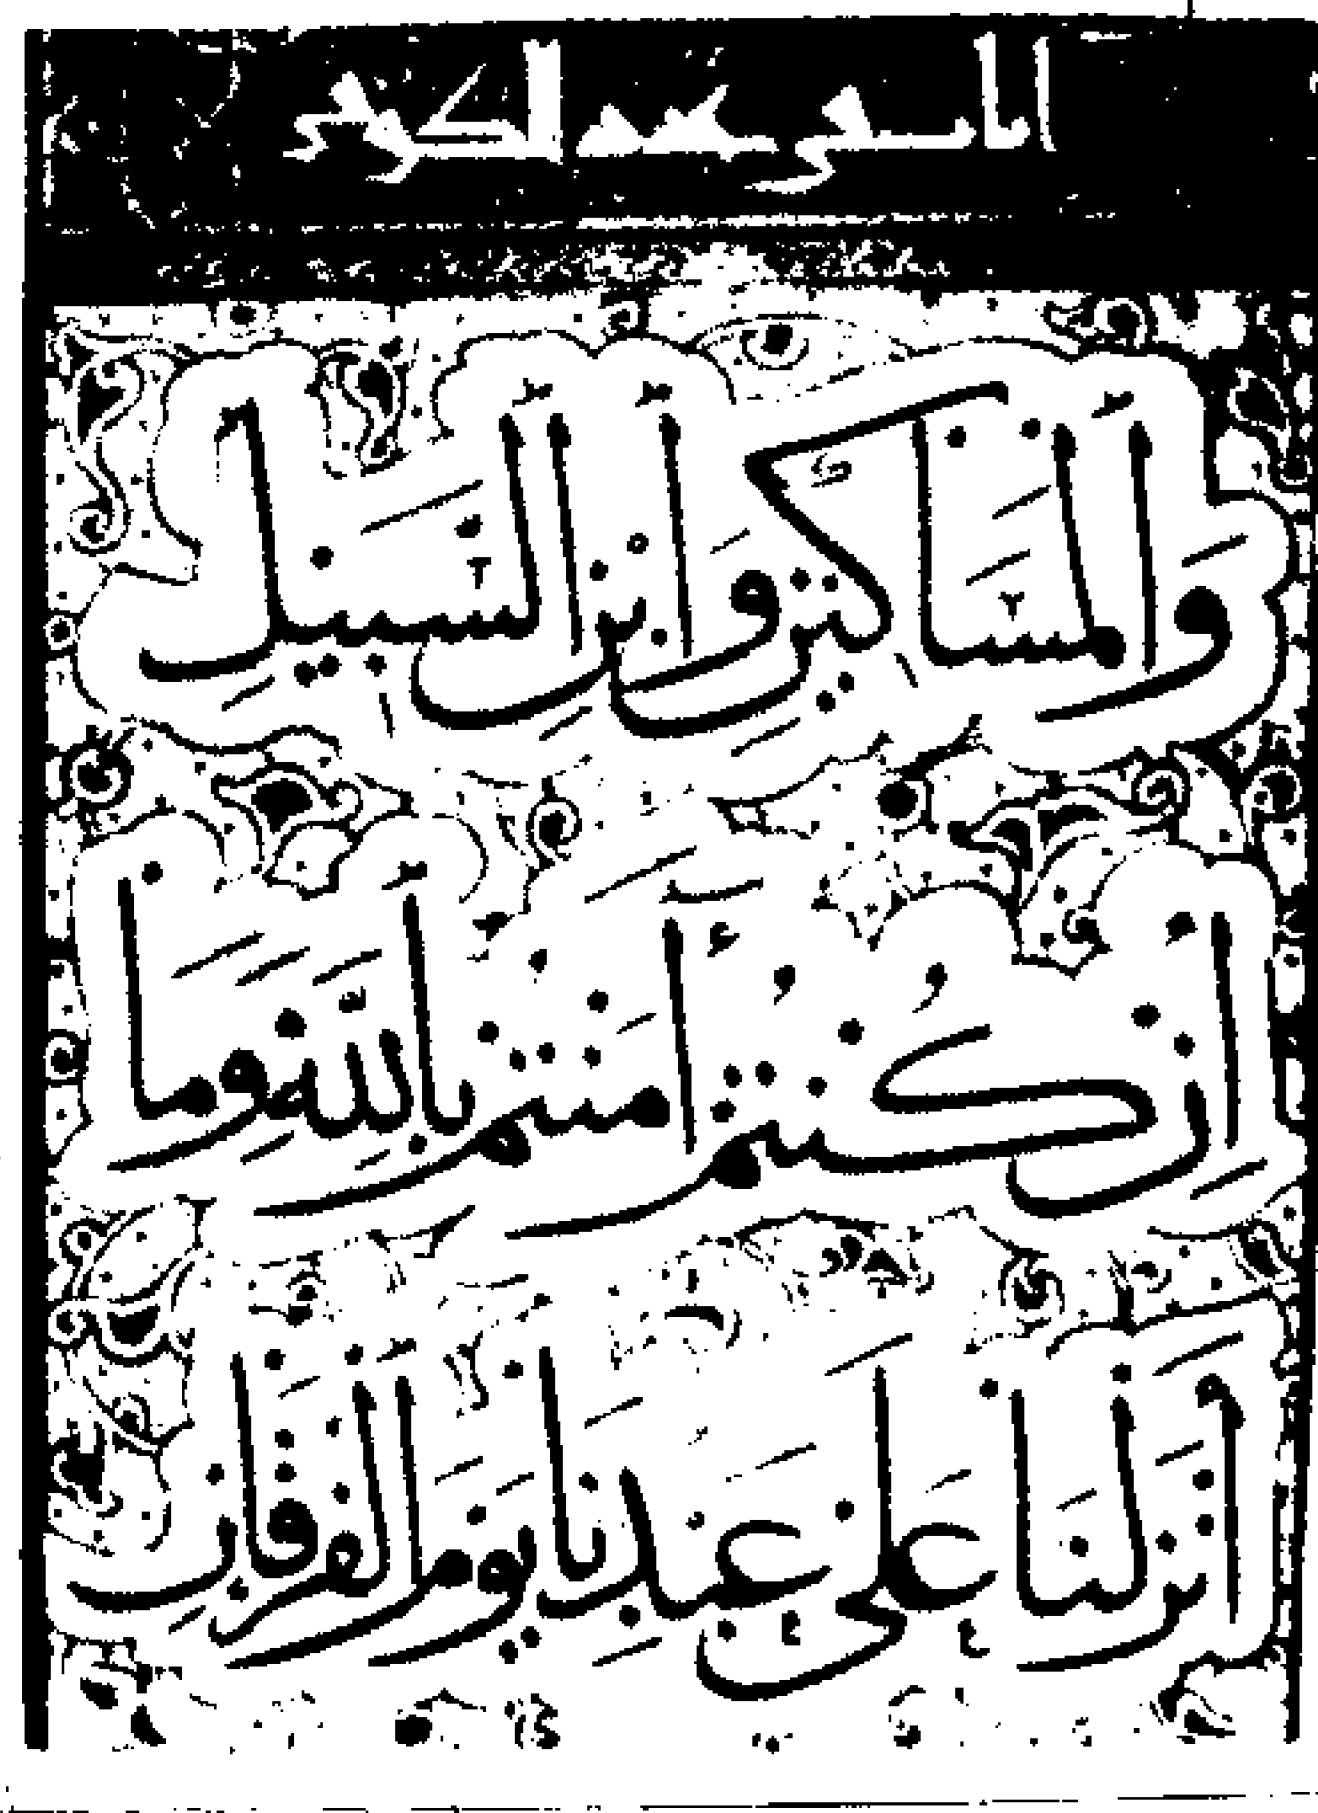 وَالْمَسَاكِينِ وَابْنِ السَّبِيلِ
اِنْ كُنْتُمْ آمَنْتُمْ بِاللَّهِ وَمَا
اَنْزَلْنَا عَلَى عَبْدِنَا يَوْمَ الْفُرْقَانِ